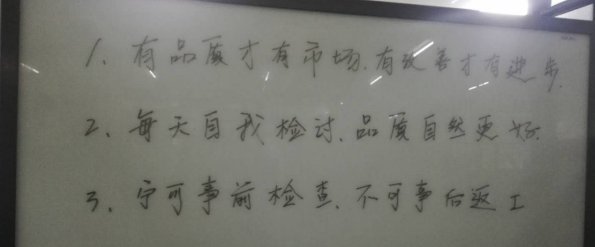 1、有品质才有市场,有改善才有进步.
2、每天自我检讨、品质自然更好.
3、宁可事前检查、不可事后返工